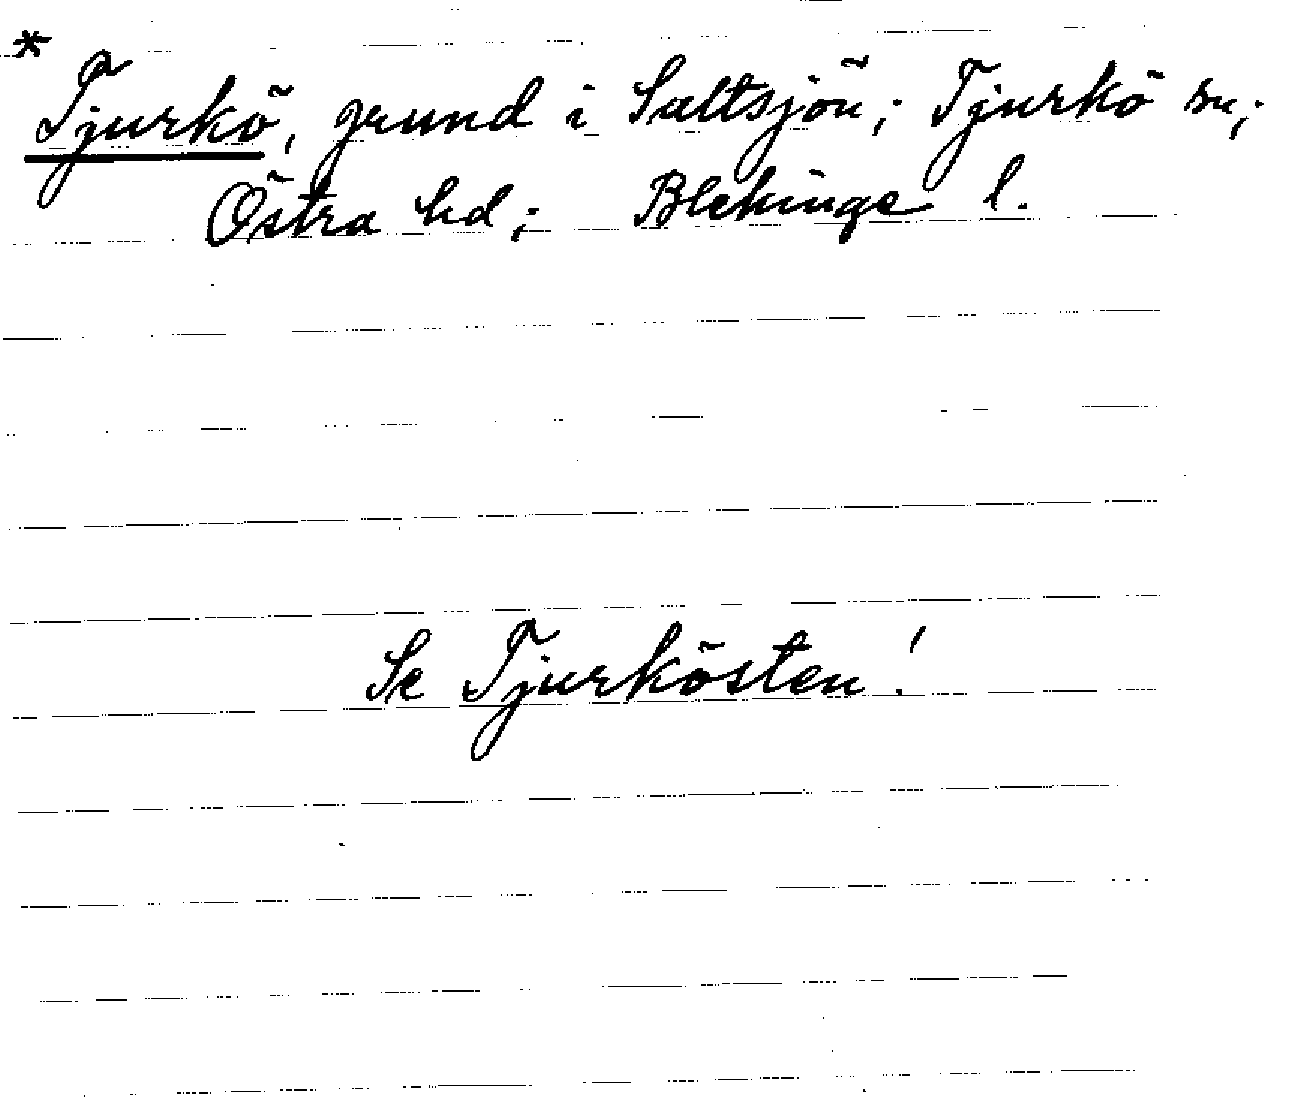 * Tjurkö, grund i Saltsjön; Tjurkö sn;
Östra hd; Blekinge l.
Se Tjurkösten!